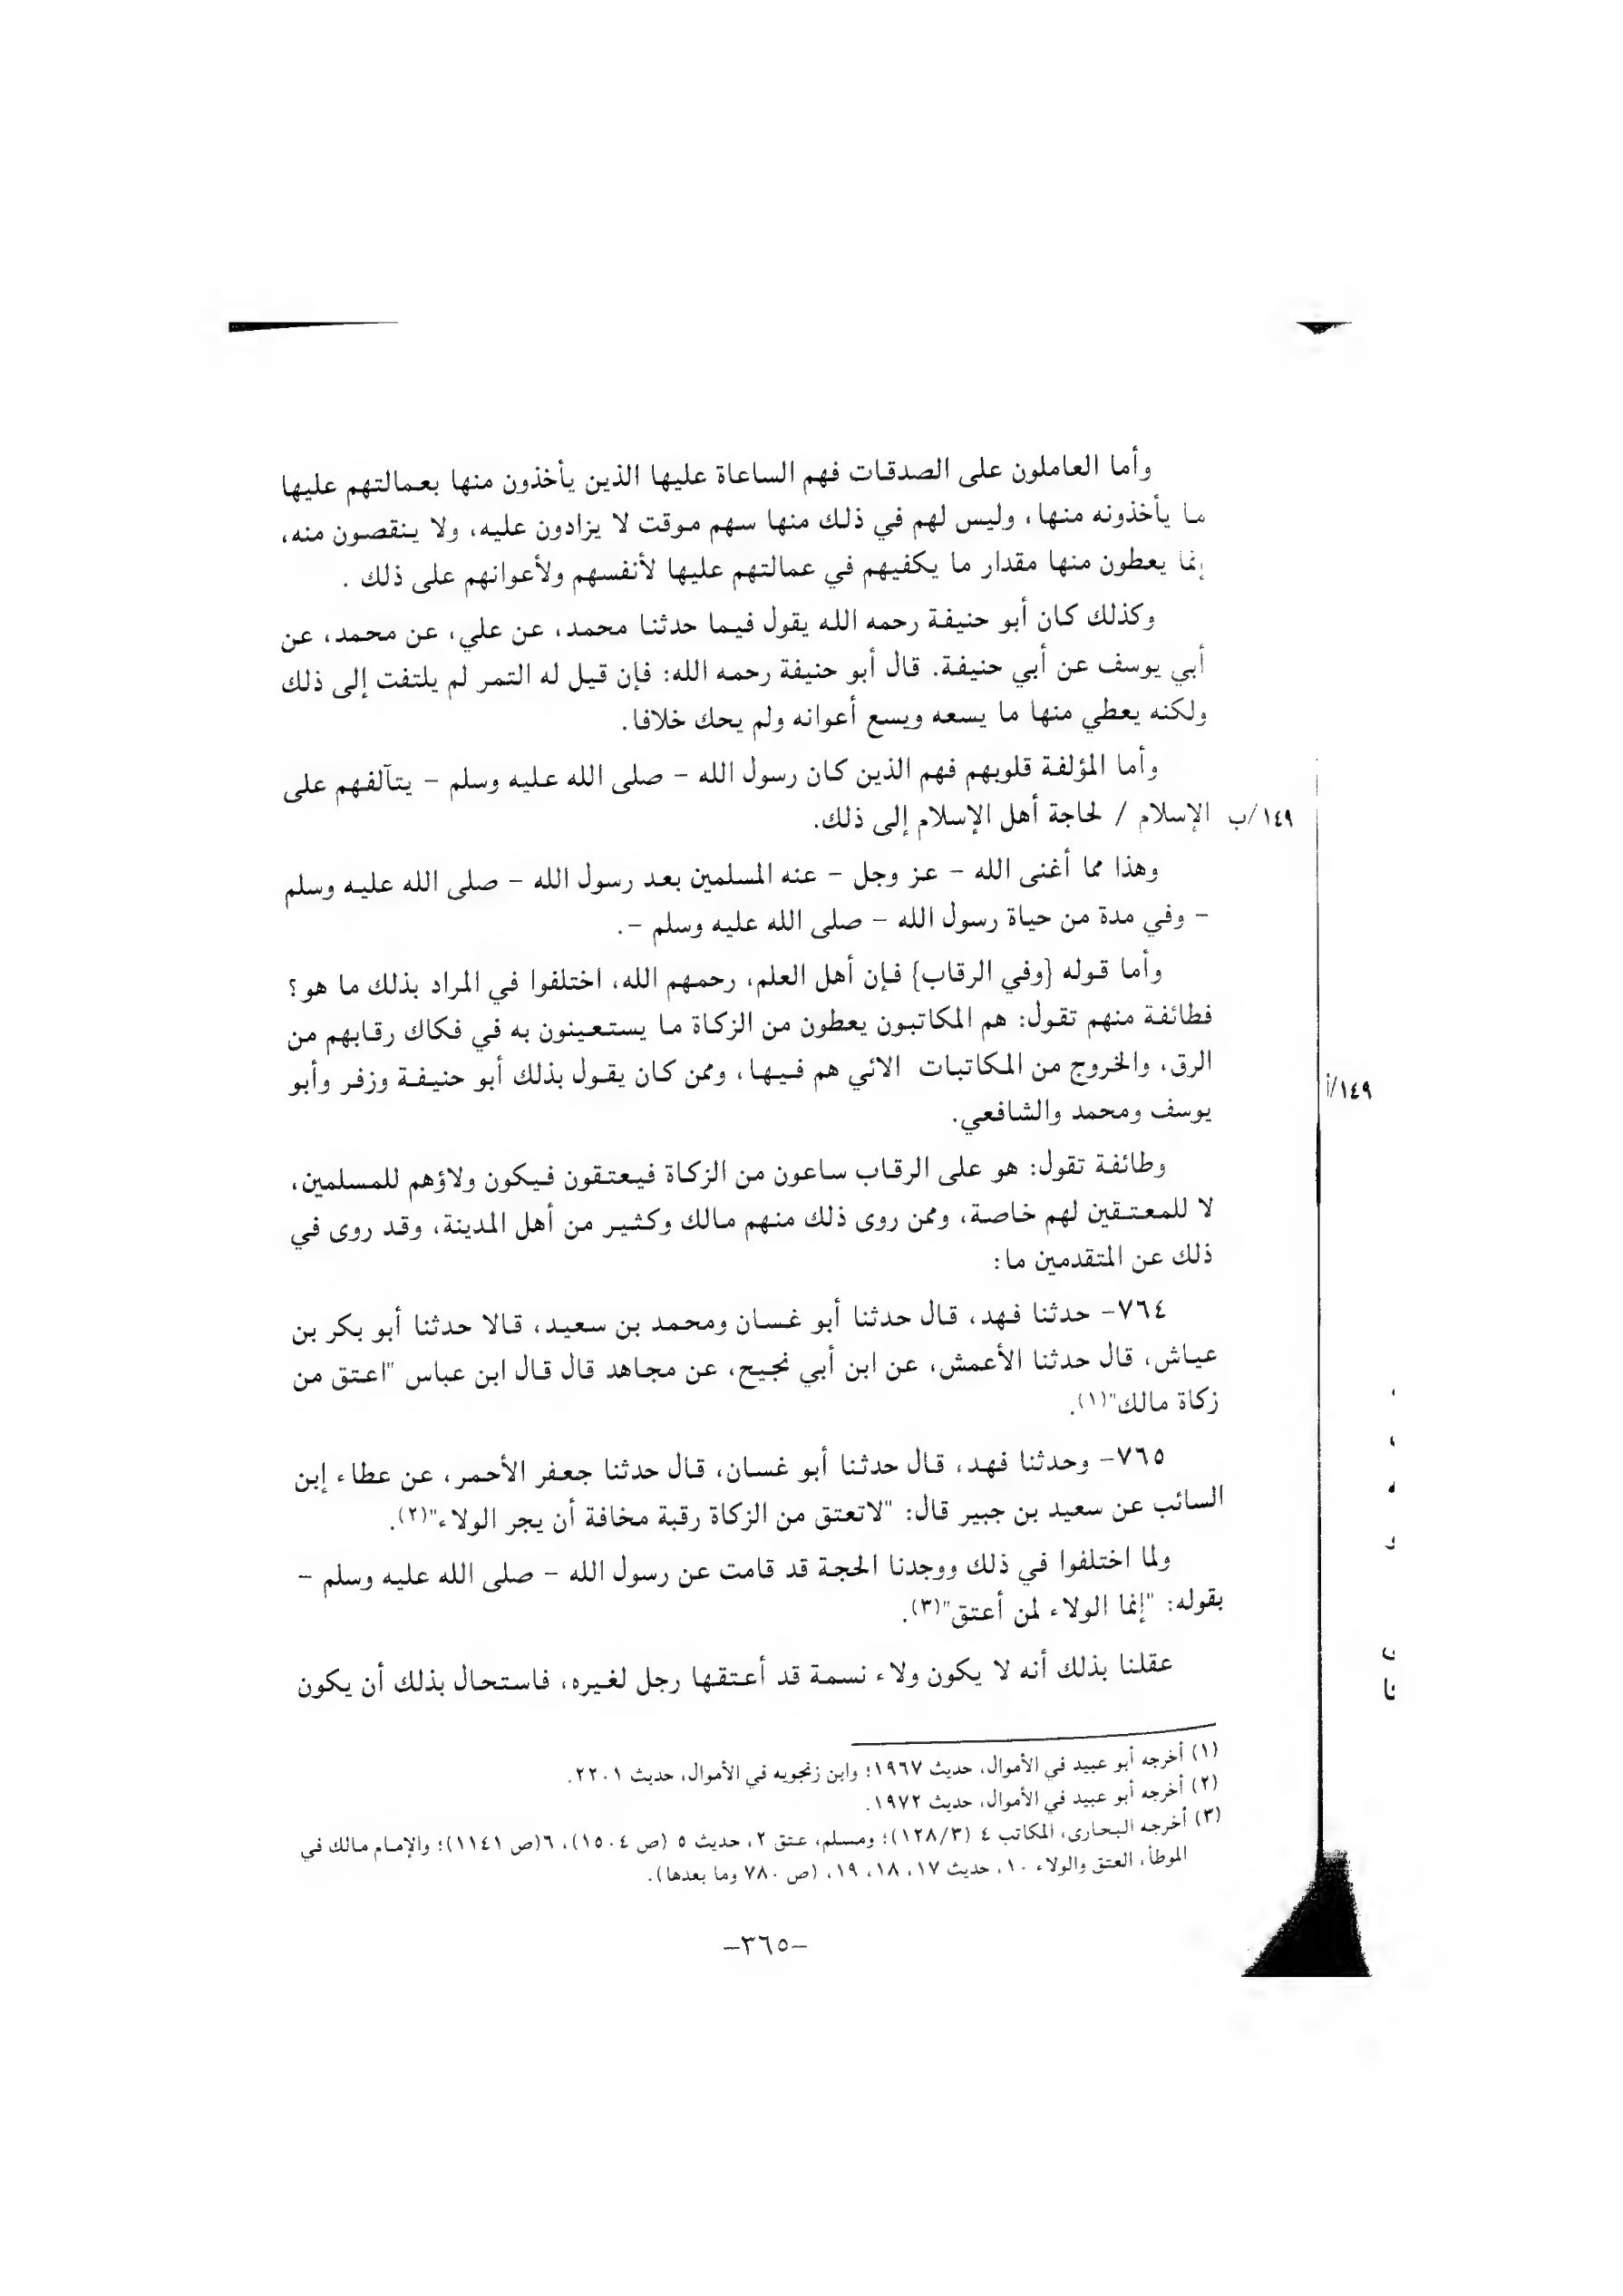 وأما العاملون على الصدقات فهم الساعاة عليها الذين يأخذون منها بعمالتهم عليها
ما يأخذونه منها، وليس لهم في ذلك منها سهم موقت لا يزادون عليه، ولا ينقصون منه،
إنما يعطون منها مقدار ما يكفيهم في عمالتهم عليها لأنفسهم ولأعوانهم على ذلك .
وكذلك كان أبو حنيفة رحمه الله يقول فيما حدثنا محمد، عن علي، عن محمد، عن
أبي يوسف عن أبي حنيفة. قال أبو حنيفة رحمه الله: فإن قيل له التمر لم يلتفت إلى ذلك
ولكنه يعطي منها ما يسعه ويسع أعوانه ولم يحك خلافا.
وأما المؤلفة قلوبهم فهم الذين كان رسول الله – صلى الله عليه وسلم – يتآلفهم على
١٤٩/ب الإسلام / لحاجة أهل الإسلام إلى ذلك.
وهذا مما أغنى الله – عز وجل – عنه المسلمين بعد رسول الله – صلى الله عليه وسلم
– وفي مدة من حياة رسول الله – صلى الله عليه وسلم –.
وأما قوله {وفي الرقاب} فإن أهل العلم، رحمهم الله، اختلفوا في المراد بذلك ما هو؟
فطائفة منهم تقول: هم المكاتبون يعطون من الزكاة ما يستعينون به في فكاك رقابهم من
الرق، والخروج من المكاتبات الائي هم فيها، وممن كان يقول بذلك أبو حنيفة وزفر وأبو
١٤٩/أ
يوسف ومحمد والشافعي.
وطائفة تقول: هو على الرقاب ساعون من الزكاة فيعتقون فيكون ولاؤهم للمسلمين،
لا للمعتقين لهم خاصة، وممن روى ذلك منهم مالك وكثير من أهل المدينة، وقد روى في
ذلك عن المتقدمين ما:
٧٦٤– حدثنا فهد، قال حدثنا أبو غسان ومحمد بن سعيد، قالا حدثنا أبو بكر بن
عياش، قال حدثنا الأعمش، عن ابن أبي نجيح، عن مجاهد قال قال ابن عباس "اعتق من
زكاة مالك"(١).
٧٦٥– وحدثنا فهد، قال حدثنا أبو غسان، قال حدثنا جعفر الأحمر، عن عطاء إبن
السائب عن سعيد بن جبير قال: "لاتعتق من الزكاة رقبة مخافة أن يجر الولاء"(٢).
ولما اختلفوا في ذلك ووجدنا الحجة قد قامت عن رسول الله – صلى الله عليه وسلم –
بقوله: "إنما الولاء لمن أعتق"(٣).
عقلنا بذلك أنه لا يكون ولاء نسمة قد أعتقها رجل لغيره، فاستحال بذلك أن يكون
(١) أخرجه أبو عبيد في الأموال، حديث ١٩٦٧؛ وابن زنجويه في الأموال، حديث ٢٢٠١.
(٢) أخرجه أبو عبيد في الأموال، حديث ١٩٧٢.
(٣) أخرجه البخارى، المكاتب ٤ (١٢٨/٣)؛ ومسلم، عتق ٢، حديث ٥ (ص ١٥٠٤)، ٦(ص ١١٤١)؛ والإمام مالك في
الموطأ، العتق والولاء ١٠، حديث ١٧، ١٨، ١٩، (ص ٧٨٠ وما بعدها).
–٣٦٥–